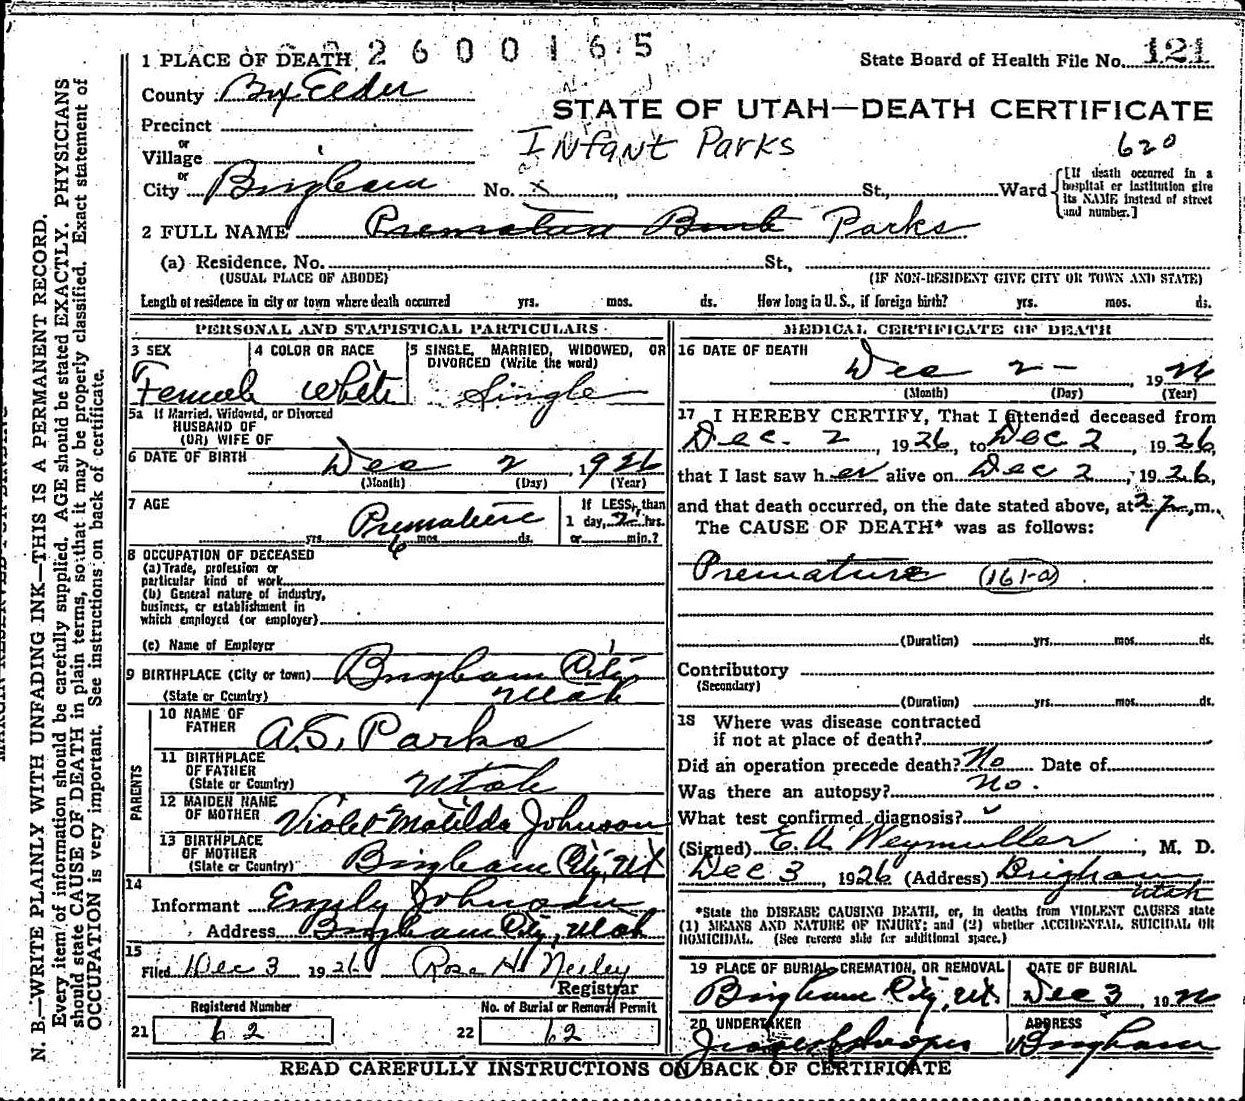 2600165
1 PLACE OF DEATH
State Board of Health File No. 121
County Box Elder
STATE OF UTAH—DEATH CERTIFICATE
Precinct
Infant Parks
620
or
Village
or
City Brigham No. x St., Ward
[If death occurred in a hospital or institution give its NAME instead of street and number.]
2 FULL NAME Premature Birth Parks
(a) Residence, No. St.,
(USUAL PLACE OF ABODE) (IF NON-RESIDENT GIVE CITY OR TOWN AND STATE)
Length of residence in city or town where death occurred yrs. mos. ds. How long in U. S., if foreign birth? yrs. mos. ds.
PERSONAL AND STATISTICAL PARTICULARS
3 SEX
Female
4 COLOR OR RACE
White
5 SINGLE, MARRIED, WIDOWED, OR
DIVORCED (Write the word)
Single
5a If Married, Widowed, or Divorced
HUSBAND OF
(OR) WIFE OF
6 DATE OF BIRTH Dec 2, 1926
(Month) (Day) (Year)
7 AGE
Premature
6
yrs. mos. ds.
If LESS than
1 day, 2 hrs.
or min.?
8 OCCUPATION OF DECEASED
(a) Trade, profession or
particular kind of work
(b) General nature of industry,
business, or establishment in
which employed (or employer)
(c) Name of Employer
9 BIRTHPLACE (City or town) Brigham City
(State or Country) Utah
PARENTS
10 NAME OF
FATHER A.S. Parks
11 BIRTHPLACE
OF FATHER
(State or Country) Utah
12 MAIDEN NAME
OF MOTHER Violet Matilda Johnson
13 BIRTHPLACE
OF MOTHER
(State or Country) Brigham City, Ut
14
Informant Emily Johnson
Address Brigham City, Utah
15
Filed Dec 3 1926 Rose H. Neeley
Registrar
Registered Number
21 62
No. of Burial or Removal Permit
22 62
MEDICAL CERTIFICATE OF DEATH
16 DATE OF DEATH
Dec 2— 1926
(Month) (Day) (Year)
17 I HEREBY CERTIFY, That I attended deceased from
Dec. 2, 1926, to Dec 2, 1926,
that I last saw her alive on Dec 2, 1926,
and that death occurred, on the date stated above, at m.,
The CAUSE OF DEATH* was as follows:
Premature (161-a)
(Duration) yrs. mos. ds.
Contributory
(Secondary)
(Duration) yrs. mos. ds.
18 Where was disease contracted
if not at place of death?
Did an operation precede death? No Date of
Was there an autopsy? No.
What test confirmed diagnosis? ✓
(Signed) E. A. Weymuller, M. D.
Dec 3, 1926 (Address) Brigham
Utah
*State the DISEASE CAUSING DEATH, or, in deaths from VIOLENT CAUSES state
(1) MEANS AND NATURE OF INJURY; and (2) whether ACCIDENTAL, SUICIDAL OR
HOMICIDAL. (See reverse side for additional space.)
19 PLACE OF BURIAL, CREMATION, OR REMOVAL
Brigham City, Ut.
DATE OF BURIAL
Dec 3, 1926
20 UNDERTAKER
ADDRESS
Brigham
READ CAREFULLY INSTRUCTIONS ON BACK OF CERTIFICATE
MARGIN RESERVED FOR BINDING
N. B.—WRITE PLAINLY WITH UNFADING INK—THIS IS A PERMANENT RECORD.
Every item of information should be carefully supplied. AGE should be stated EXACTLY. PHYSICIANS
should state CAUSE OF DEATH in plain terms, so that it may be properly classified. Exact statement of
OCCUPATION is very important. See instructions on back of certificate.